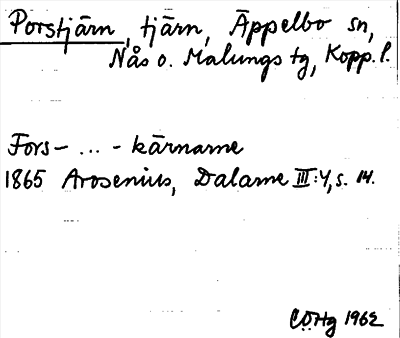 Porstjärn, tjärn, Äppelbo sn,
Nås o. Malungs tg, Kopp. l.
Fors- ... - kärnarne
1865 Arosenius, Dalarne III:4, s. 14.
CÖHg 1962